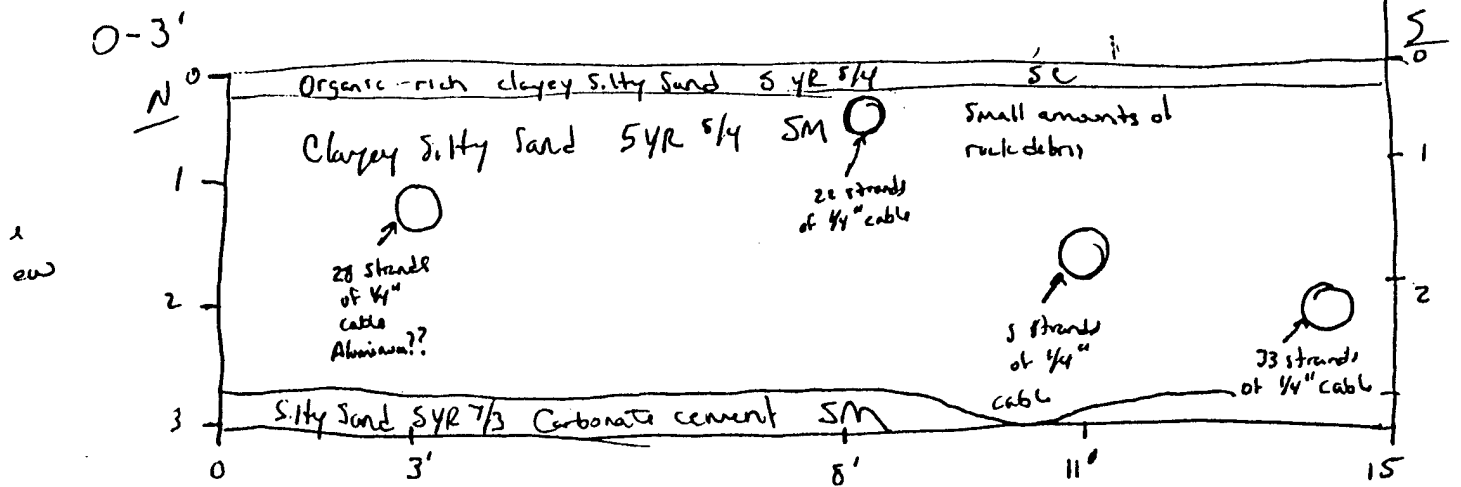 0-3'
S
N
0
0
Organic-rich clayey Silty Sand 5 YR 5/4 SC
Clayey Silty Sand 5YR 5/4 SM
Small amounts of
rock debris
1
1
22 strands
of 1/4" cable
28 strands
of 1/4"
cable
Aluminum??
2
2
5 strands
of 1/4"
cable
33 strands
of 1/4" cable
3
Silty Sand 5YR 7/3 Carbonate cement SM
0
3'
8'
11'
15